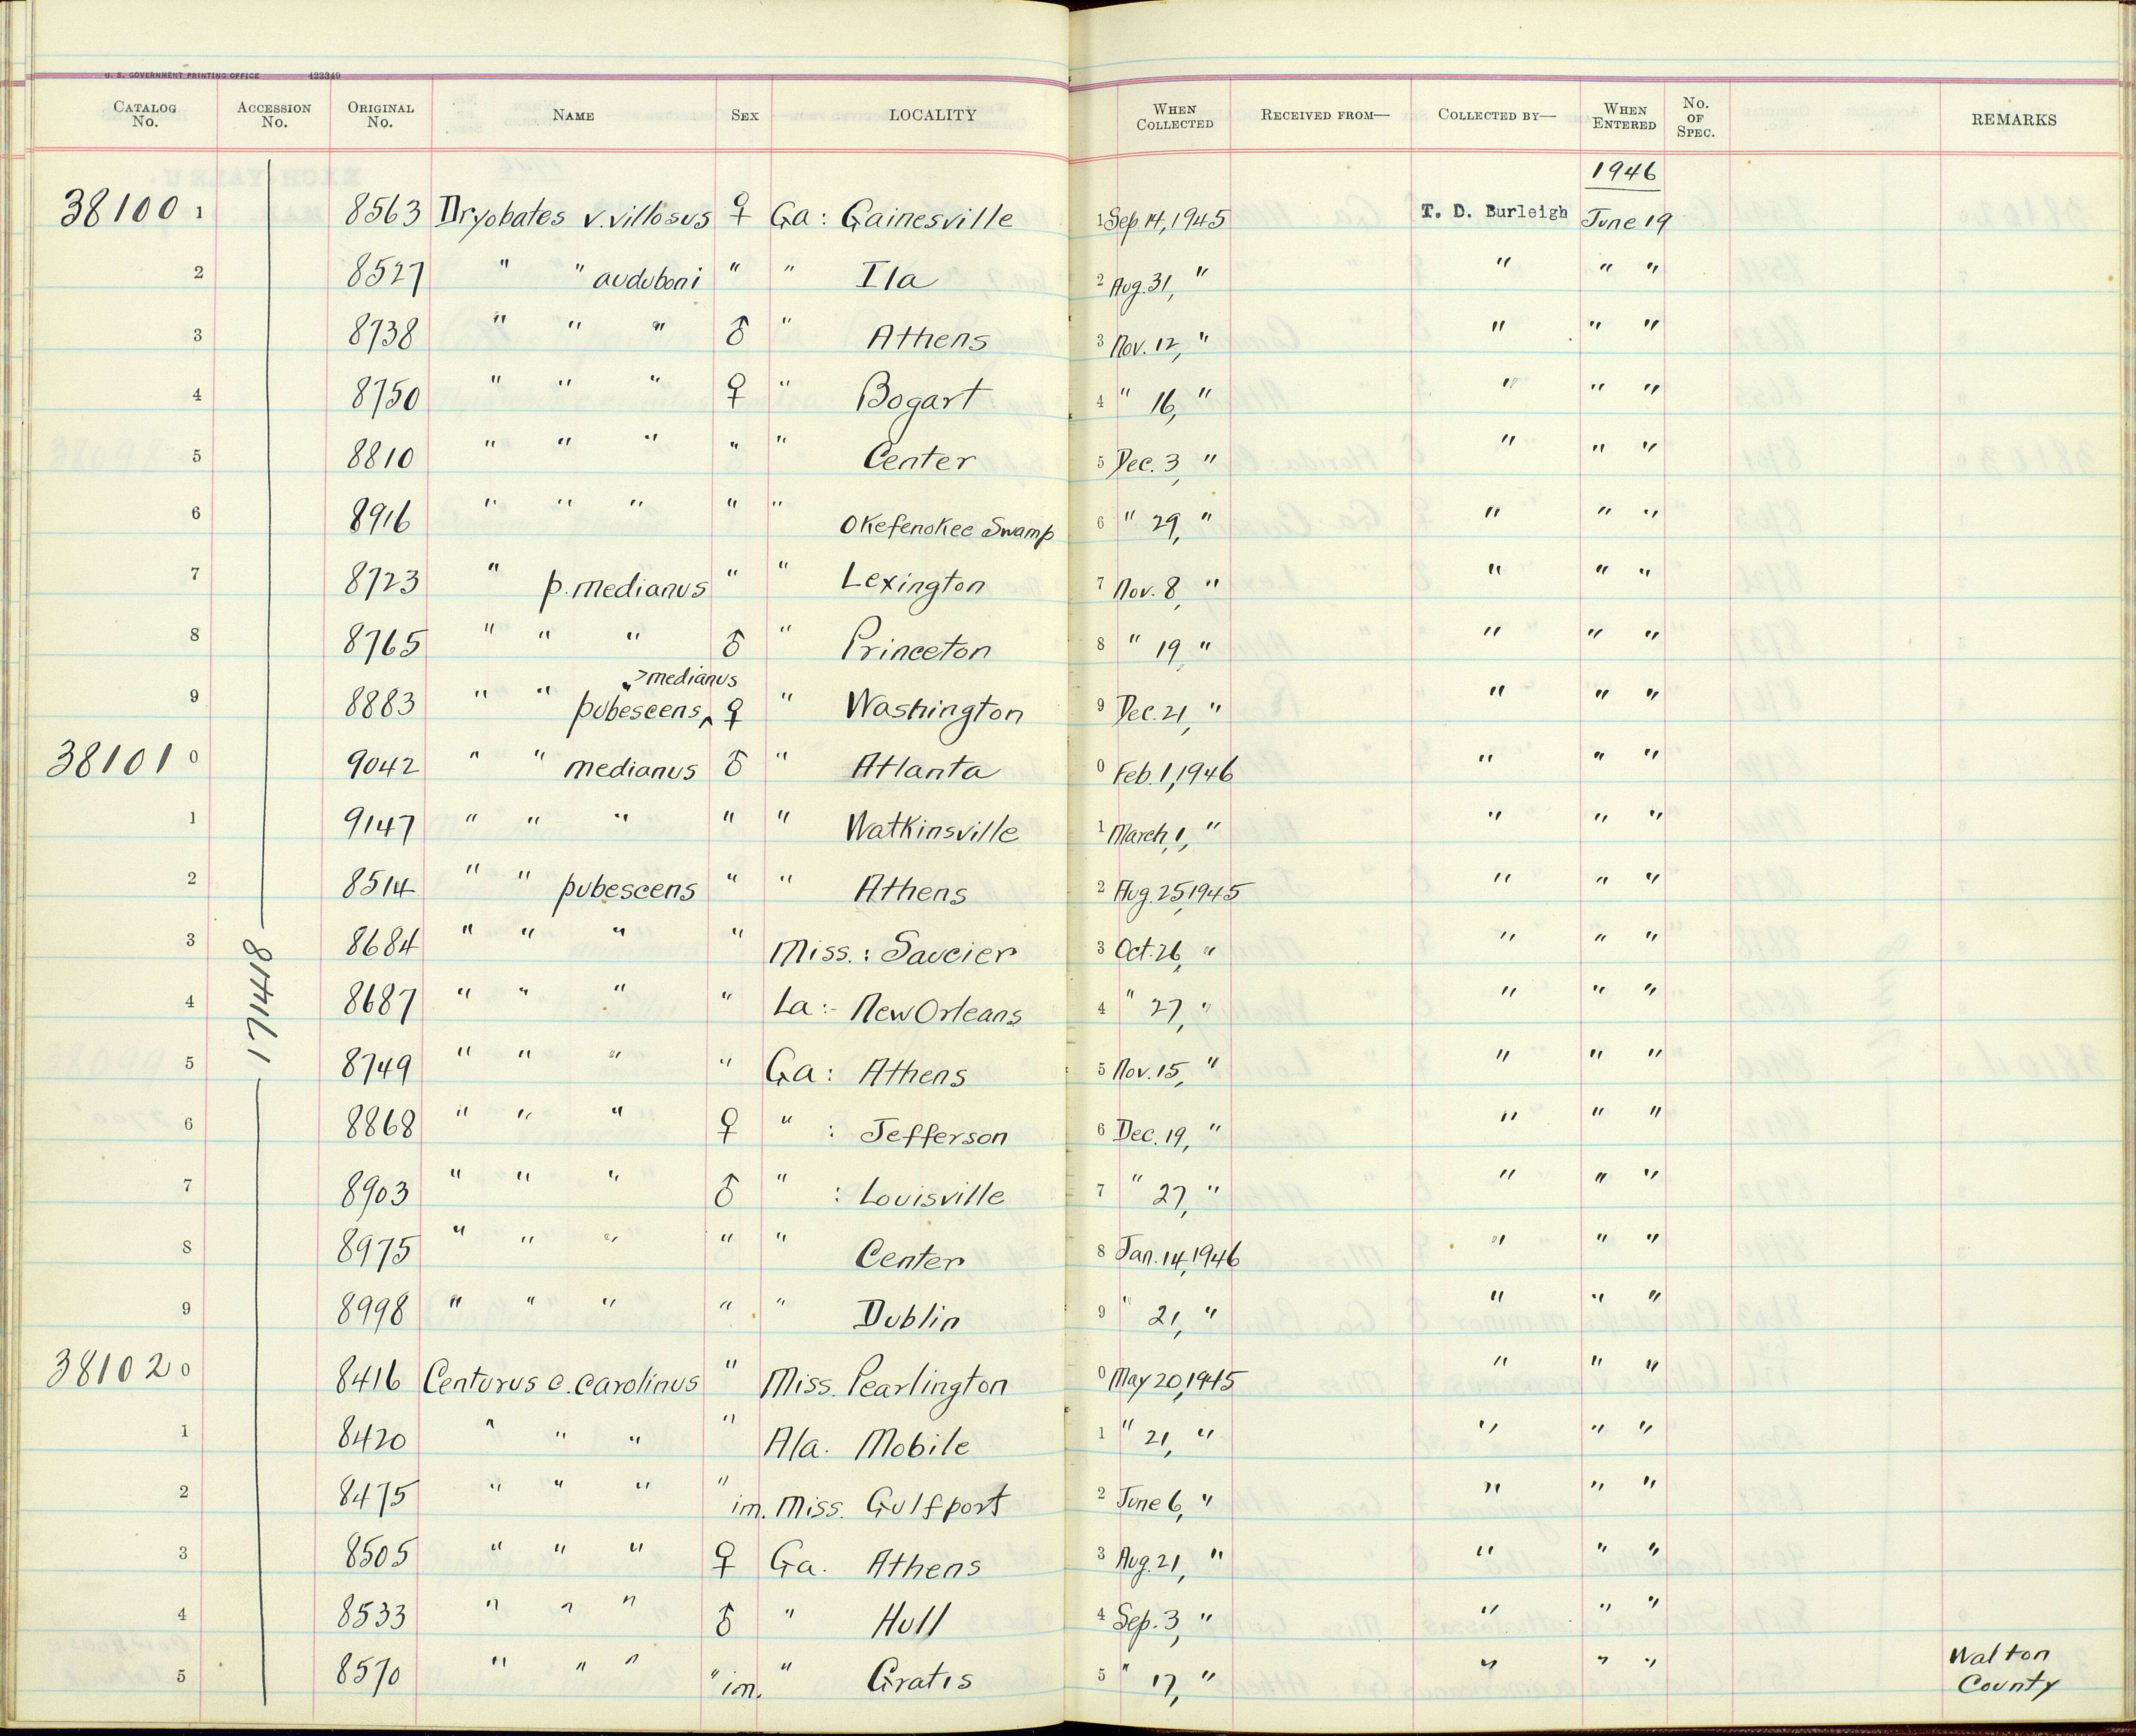 U. S. GOVERNMENT PRINTING OFFICE 423349
CATALOG No. ACCESSION No. ORIGINAL No. NAME SEX LOCALITY WHEN COLLECTED RECEIVED FROM— COLLECTED BY— WHEN ENTERED No. OF SPEC. REMARKS
1946
38100 1 8563 Dryobates v. villosus ♀ Ga: Gainesville 1 Sep 14, 1945 T. D. Burleigh June 19
2 8527 " " auduboni " " Ila 2 Aug. 31, " " " "
3 8738 " " " ♂ " Athens 3 Nov. 12, " " " "
4 8750 " " " ♀ " Bogart 4 " 16, " " " "
5 8810 " " " " " Center 5 Dec. 3, " " " "
6 8916 " " " " " Okefenokee Swamp 6 " 29, " " " "
7 8723 " p. medianus " " Lexington 7 Nov. 8, " " " "
8 8765 " " " ♂ " Princeton 8 " 19, " " " "
>medianus
9 8883 " " pubescens ^ ♀ " Washington 9 Dec. 21, " " " "
38101 0 9042 " " medianus ♂ " Atlanta 0 Feb. 1, 1946 " " "
1 9147 " " " " " Watkinsville 1 March 1, " " " "
2 8514 " " pubescens " " Athens 2 Aug. 25, 1945 " " "
3 8684 " " " " Miss.: Saucier 3 Oct. 26, " " " "
4 8687 " " " " La:- New Orleans 4 " 27, " " " "
171418
5 8749 " " " " Ga: Athens 5 Nov. 15, " " " "
6 8868 " " " ♀ " : Jefferson 6 Dec. 19, " " " "
7 8903 " " " ♂ " : Louisville 7 " 27, " " " "
8 8975 " " " " " Center 8 Jan. 14, 1946 " " "
9 8998 " " " " " Dublin 9 " 21, " " " "
38102 0 8416 Centurus c. carolinus " Miss. Pearlington 0 May 20, 1945 " " "
1 8420 " " " " Ala. Mobile 1 " 21, " " " "
2 8475 " " " " im. Miss. Gulfport 2 June 6, " " " "
3 8505 " " " ♀ Ga. Athens 3 Aug. 21, " " " "
4 8533 " " " ♂ " Hull 4 Sep. 3, " " " "
5 8570 " " " " im. " Gratis 5 " 17, " " " " Walton
County